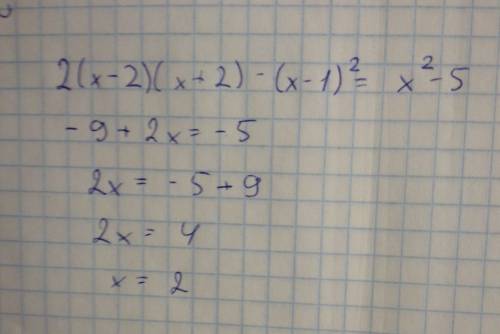 2(x-2)(x+2)-(x-1)²= x²-5
-9+2x=-5
2x=-5+9
2x=4
x=2